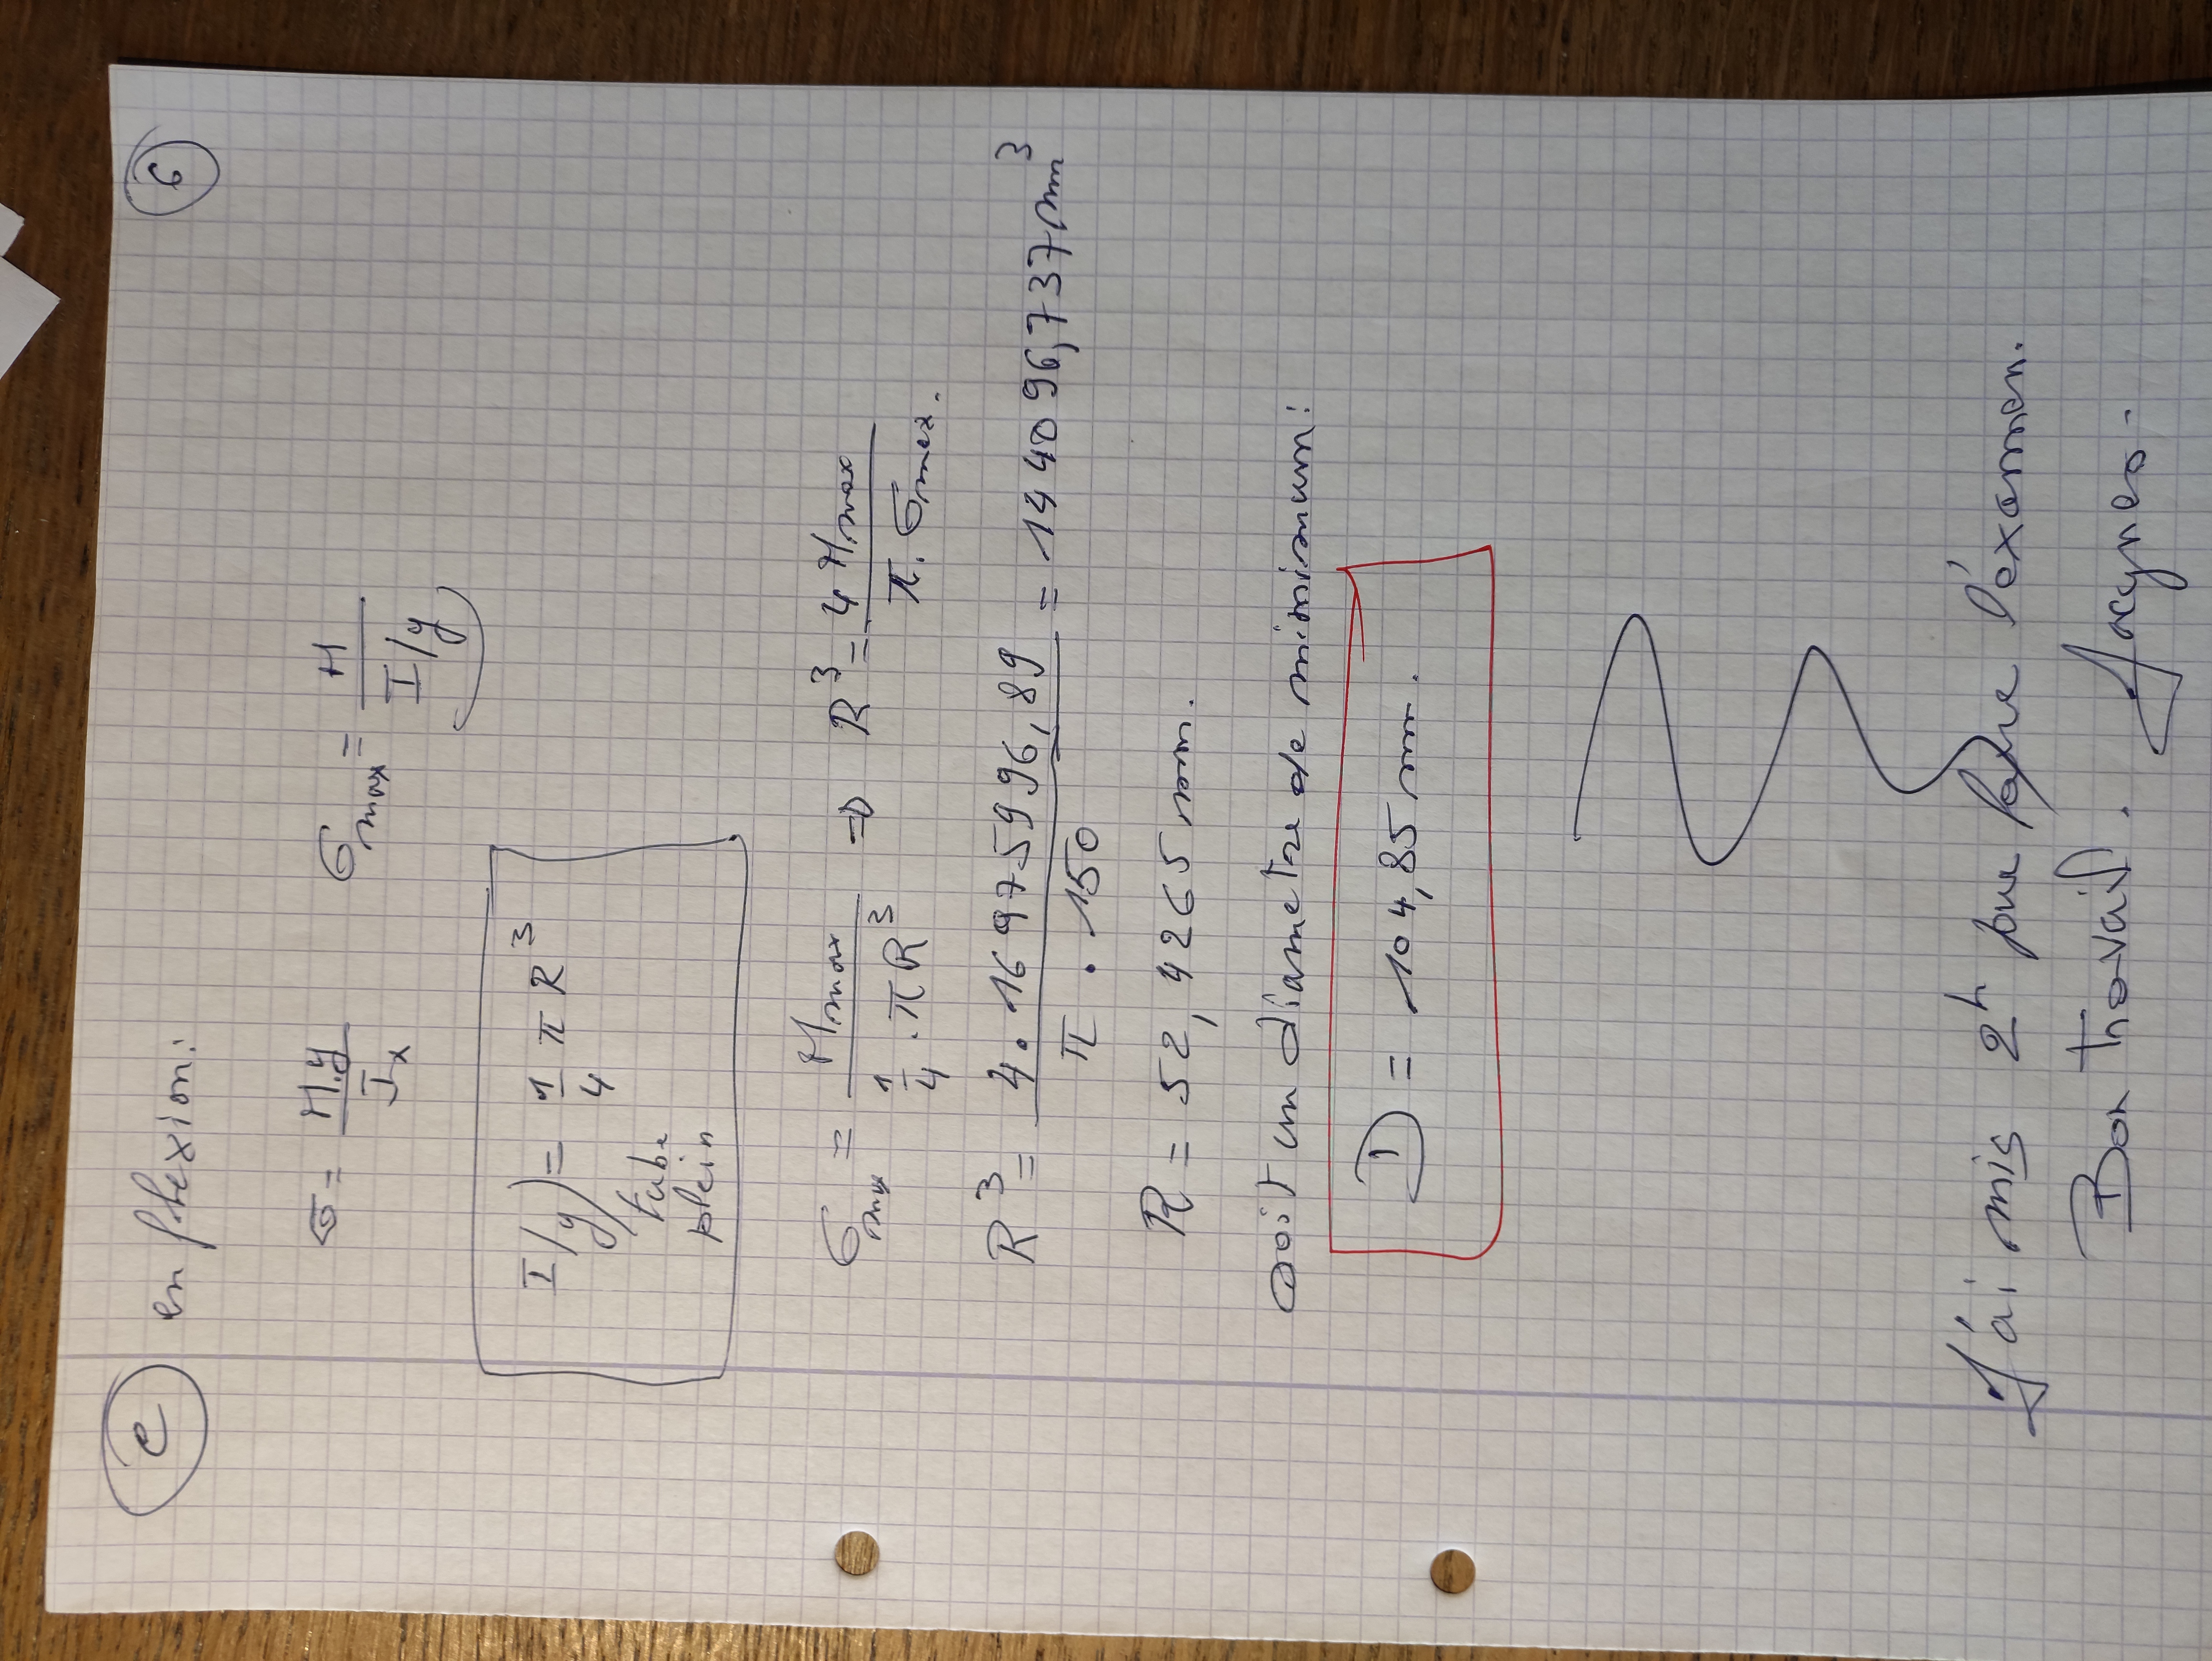 e en flexion: 6
σ = M.y / Ix σmax = M / I/y)
I/y) = 1/4 π R³
tube
plein
σmax = Mmax / 1/4 . π R³ ⇒ R³ = 4 Mmax / π . σmax.
R³ = 4 . 16975996,89 / π . 150 = 144096,737 mm³
R = 52,4265 mm.
Soit un diametre de minimum:
D = 104,85 mm.
J'ai mis 2h pour faire l'éxamen.
Bon travail. Jacques.